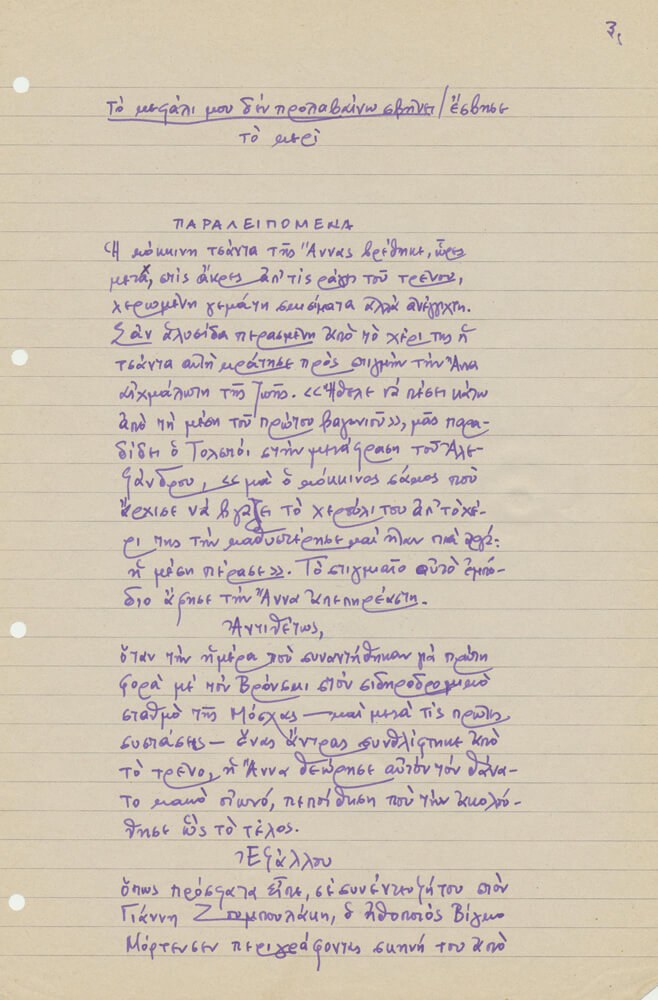 3,
Τὸ κεφάλι μου δὲν προλαβαίνω σβήνει / ἔσβησε
τὸ κερὶ
ΠΑΡΑΛΕΙΠΟΜΕΝΑ
Ἡ κόκκινη τσάντα τῆς Ἄννας βρέθηκε, ὧρες
μετά, στὶς ἄκρες ἀπ' τὶς ράγες τοῦ τρένου,
χερωμένη γεμάτη σκισίματα ἀλλὰ ἀνέγγιχτη.
Σὰν ἁλυσίδα περασμένη ἀπὸ τὸ χέρι της ἡ
τσάντα αὐτὴ κράτησε πρὸς στιγμὴν τὴν Ἄννα
αἰχμάλωτη τῆς ζωῆς. «Ἤθελε νὰ πέσει κάτω
ἀπὸ τὴ μέση τοῦ πρώτου βαγονιοῦ», μᾶς παρα-
δίδει ὁ Τολστόι στὴν μετάφραση τοῦ Ἀλε-
ξάνδρου, «μὰ ὁ κόκκινος σάκος ποὺ
ἄρχισε νὰ βγάζει τὸ χερούλι του ἀπ' τὸ χέ-
ρι της τὴν καθυστέρησε καὶ ἦταν πιὰ ἀργά:
ἡ μέση πέρασε». Τὸ στιγμιαῖο αὐτὸ ἐμπό-
διο ἄφησε τὴν Ἄννα ἀνεπηρέαστη.
Ἀντιθέτως,
ὅταν τὴν ἡμέρα ποὺ συναντήθηκαν γιὰ πρώτη
φορὰ μὲ τὸν Βρόνσκι στὸν σιδηροδρομικὸ
σταθμὸ τῆς Μόσχας — καὶ μετὰ τὶς πρῶτες
συστάσεις — ἕνας ἄντρας συνθλίφτηκε ἀπὸ
τὸ τρένο, ἡ Ἄννα θεώρησε αὐτὸν τὸν θάνα-
το κακὸ οἰωνό, πεποίθηση ποὺ τὴν ἀκολού-
θησε ὣς τὸ τέλος.
Ἐξάλλου
ὅπως πρόσφατα εἶπε, σὲ συνέντευξή του στὸν
Γιάννη Ζουμπουλάκη, ὁ ἠθοποιὸς Βίγκο
Μόρτενσεν περιγράφοντας σκηνή του ἀπὸ